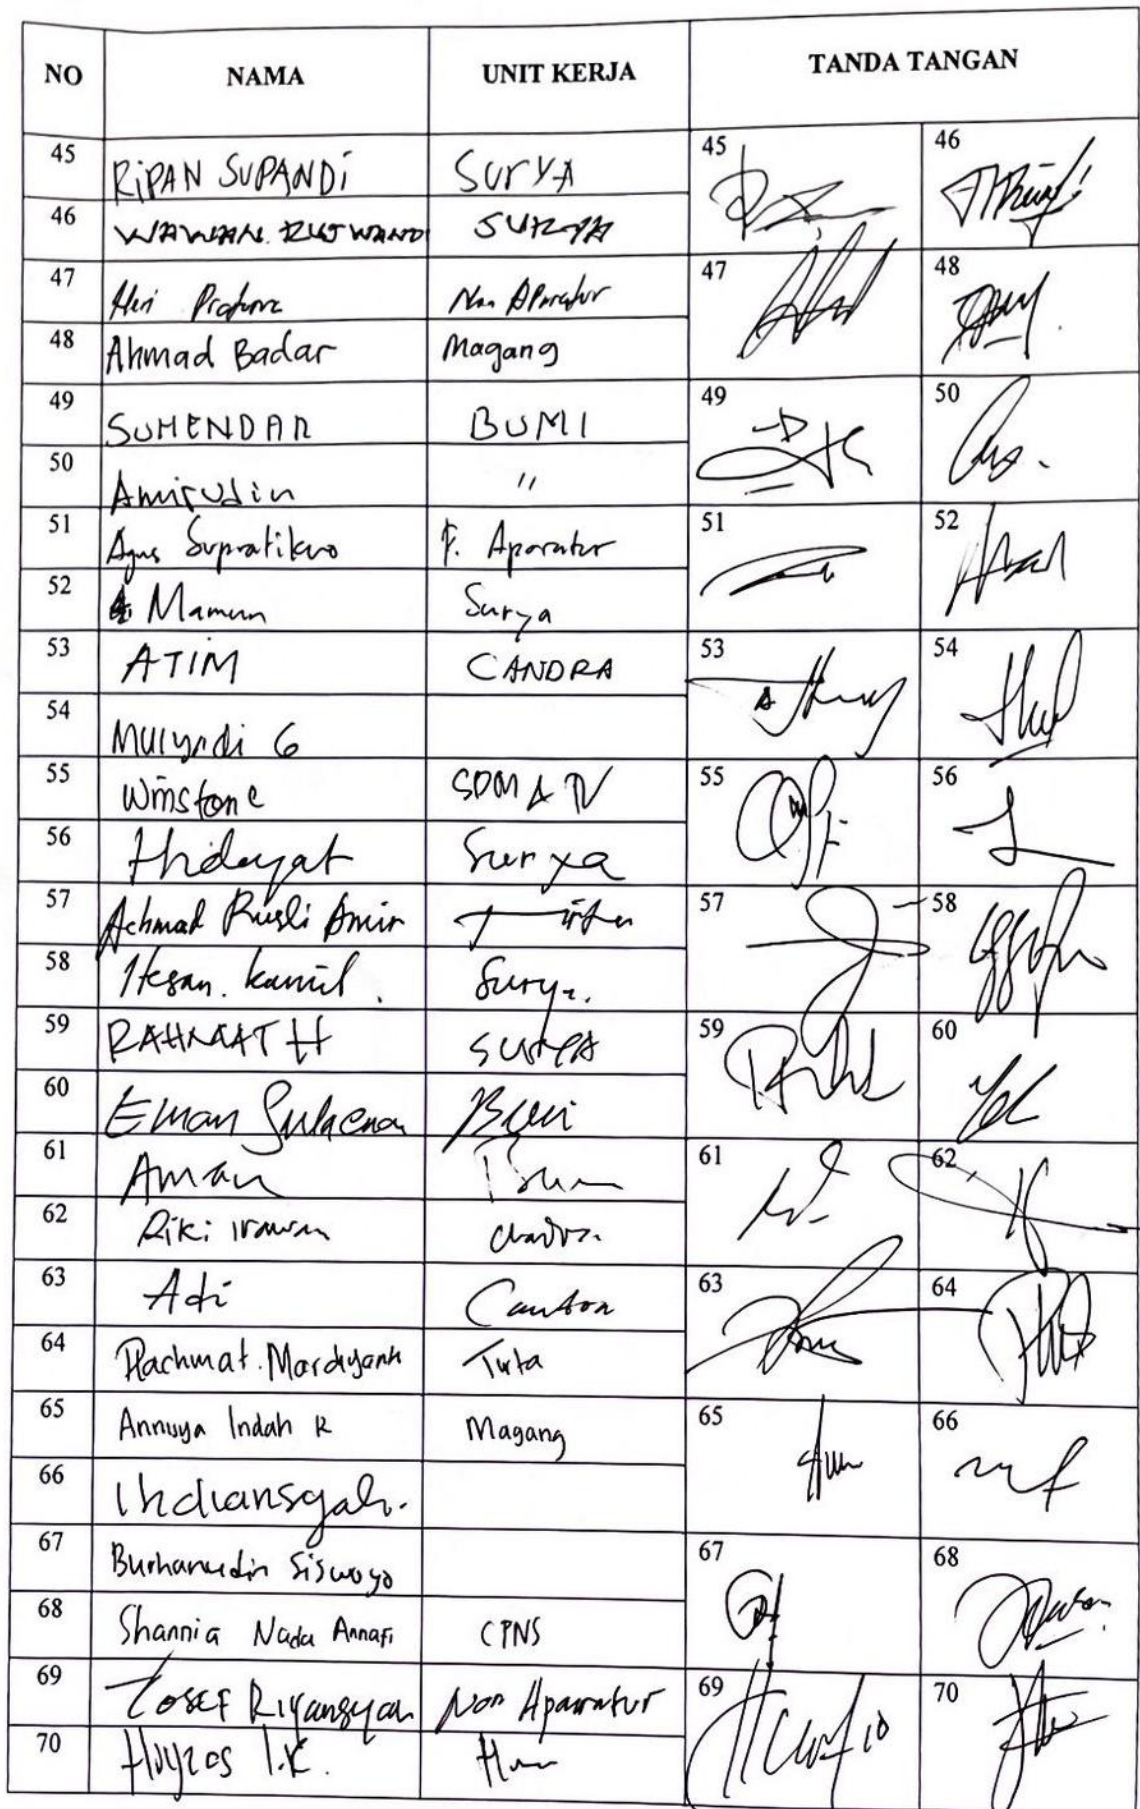 NO NAMA UNIT KERJA TANDA TANGAN
45 RiPAN SUPANDi SurYA 45 46
46 WAWAN. RUSWANDI SURYA
47 Heri Non Aparatur 47 48
48 Ahmad Badar Magang
49 SUHENDAR BUMI 49 50
50 Amirudin "
51 Agus Supratikno F. Aparatur 51 52
52 Mamun Surya
53 ATIM CANDRA 53 54
54 Mulyadi G
55 Winstone SDM 55 56
56 Hidayat Surya
57 Achmad Rusli Amir 57 58
58 Kamil Surya.
59 RAHMAT H SURYA 59 60
60 Eman Bumi
61 Aman 61 62
62 Riki irawan
63 Adi 63 64
64 Rachmat. Tirta
65 Annuya Indah R Magang 65 66
66 Indiansyah.
67 Burhanudin Siswoyo 67 68
68 Shannia Nada Annafi CPNS
69 Yosef Riyansyah Non Aparatur 69 70
70 I.K.